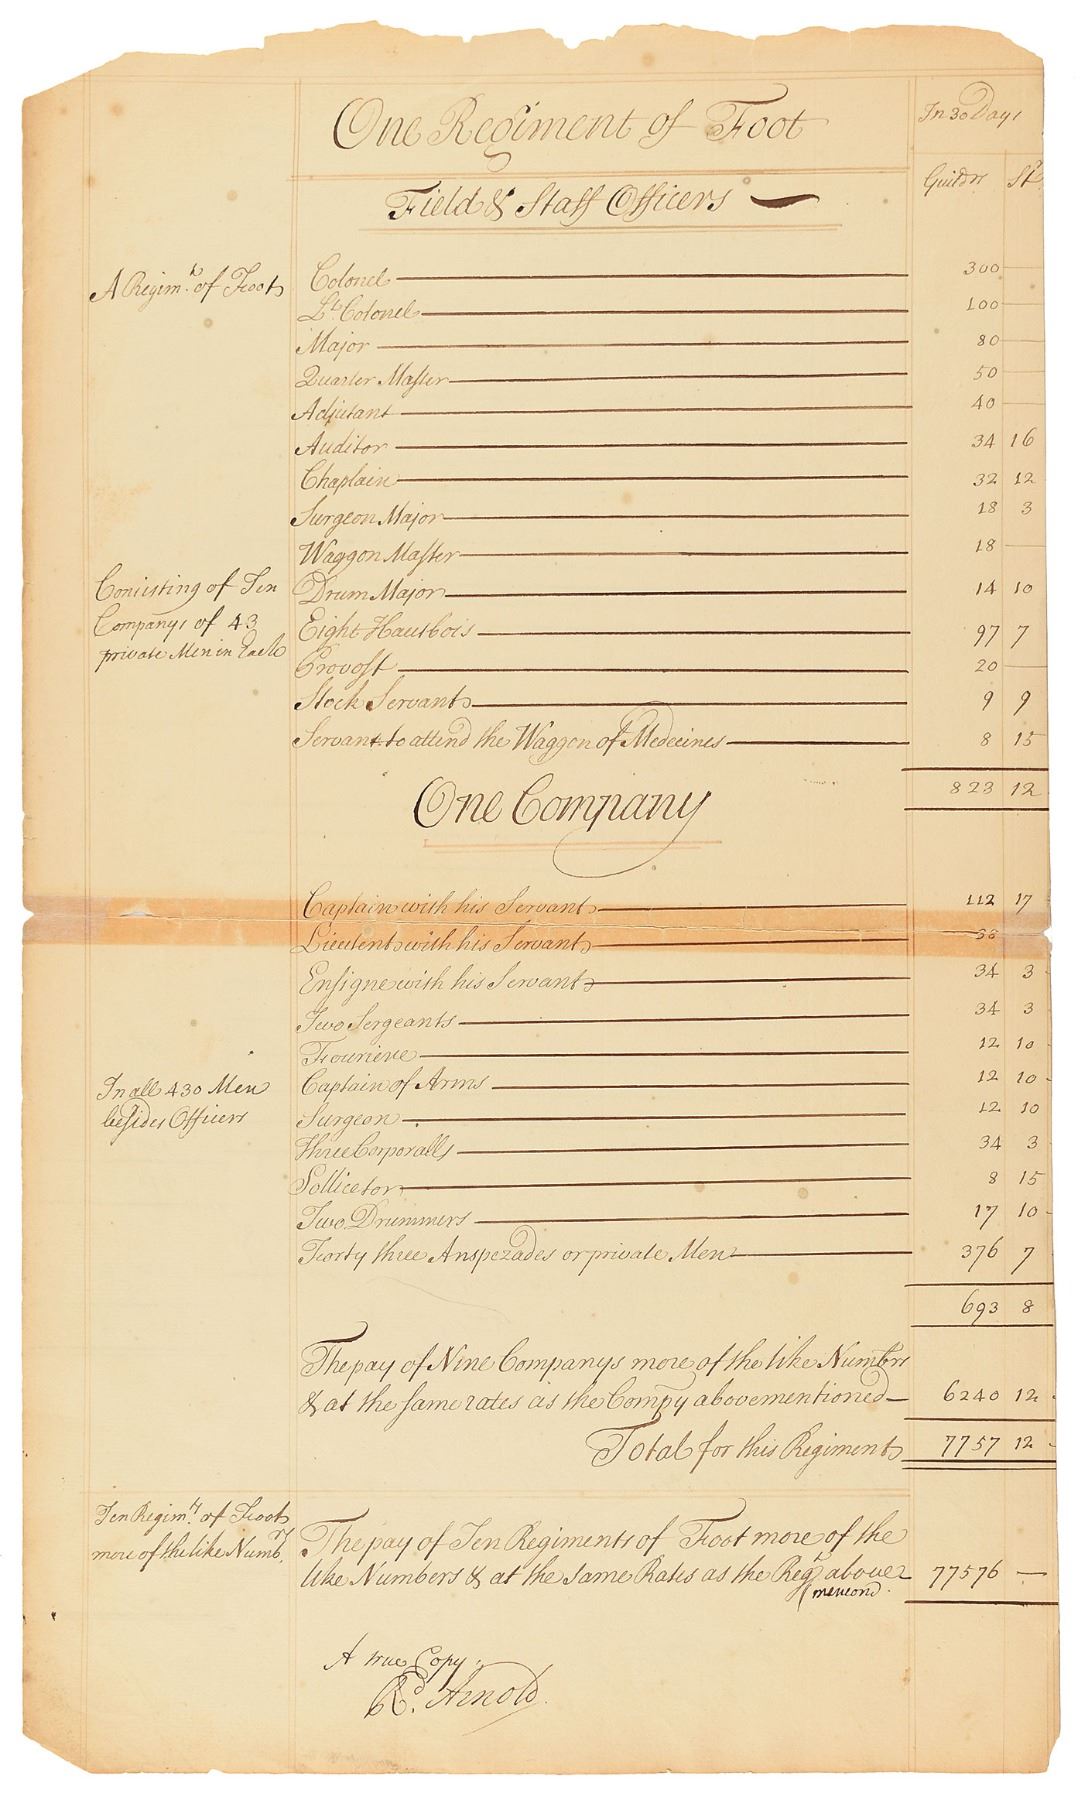 One Regiment of Foot
In 30 Days
Guildrs St.
Field & Staff Officers
A Regimt. of Foot
Colonel 300
Lt. Colonel 100
Major 80
Quarter Master 50
Adjutant 40
Auditor 34 16
Chaplain 32 12
Surgeon Major 18 3
Waggon Master 18
Consisting of Ten
Companys of 43
private Men in Each
Drum Major 14 10
Eight Hautbois 97 7
Provost 20
Stock Servant 9 9
Servant to attend the Waggon of Medecines 8 15
823 12
One Company
Captain with his Servant 112 17
Lieutent with his Servant 38
Ensigne with his Servant 34 3
Two Sergeants 34 3
Fouriere 12 10
Captain of Arms 12 10
In all 430 Men
besides Officers
Surgeon 12 10
Three Corporalls 34 3
Solliceter 8 15
Two Drummers 17 10
Forty three Anspezades or private Men 376 7
693 8
The pay of Nine Companys more of the like Numbrs
& at the same rates as the Compy abovementioned 6240 12
Total for this Regiment 7757 12
Ten Regimts. of Foot
more of the like Numbrs.
The pay of Ten Regiments of Foot more of the
like Numbers & at the Same Rates as the Regt. above 77576
mencond.
A true Copy.
Rd. Arnold.